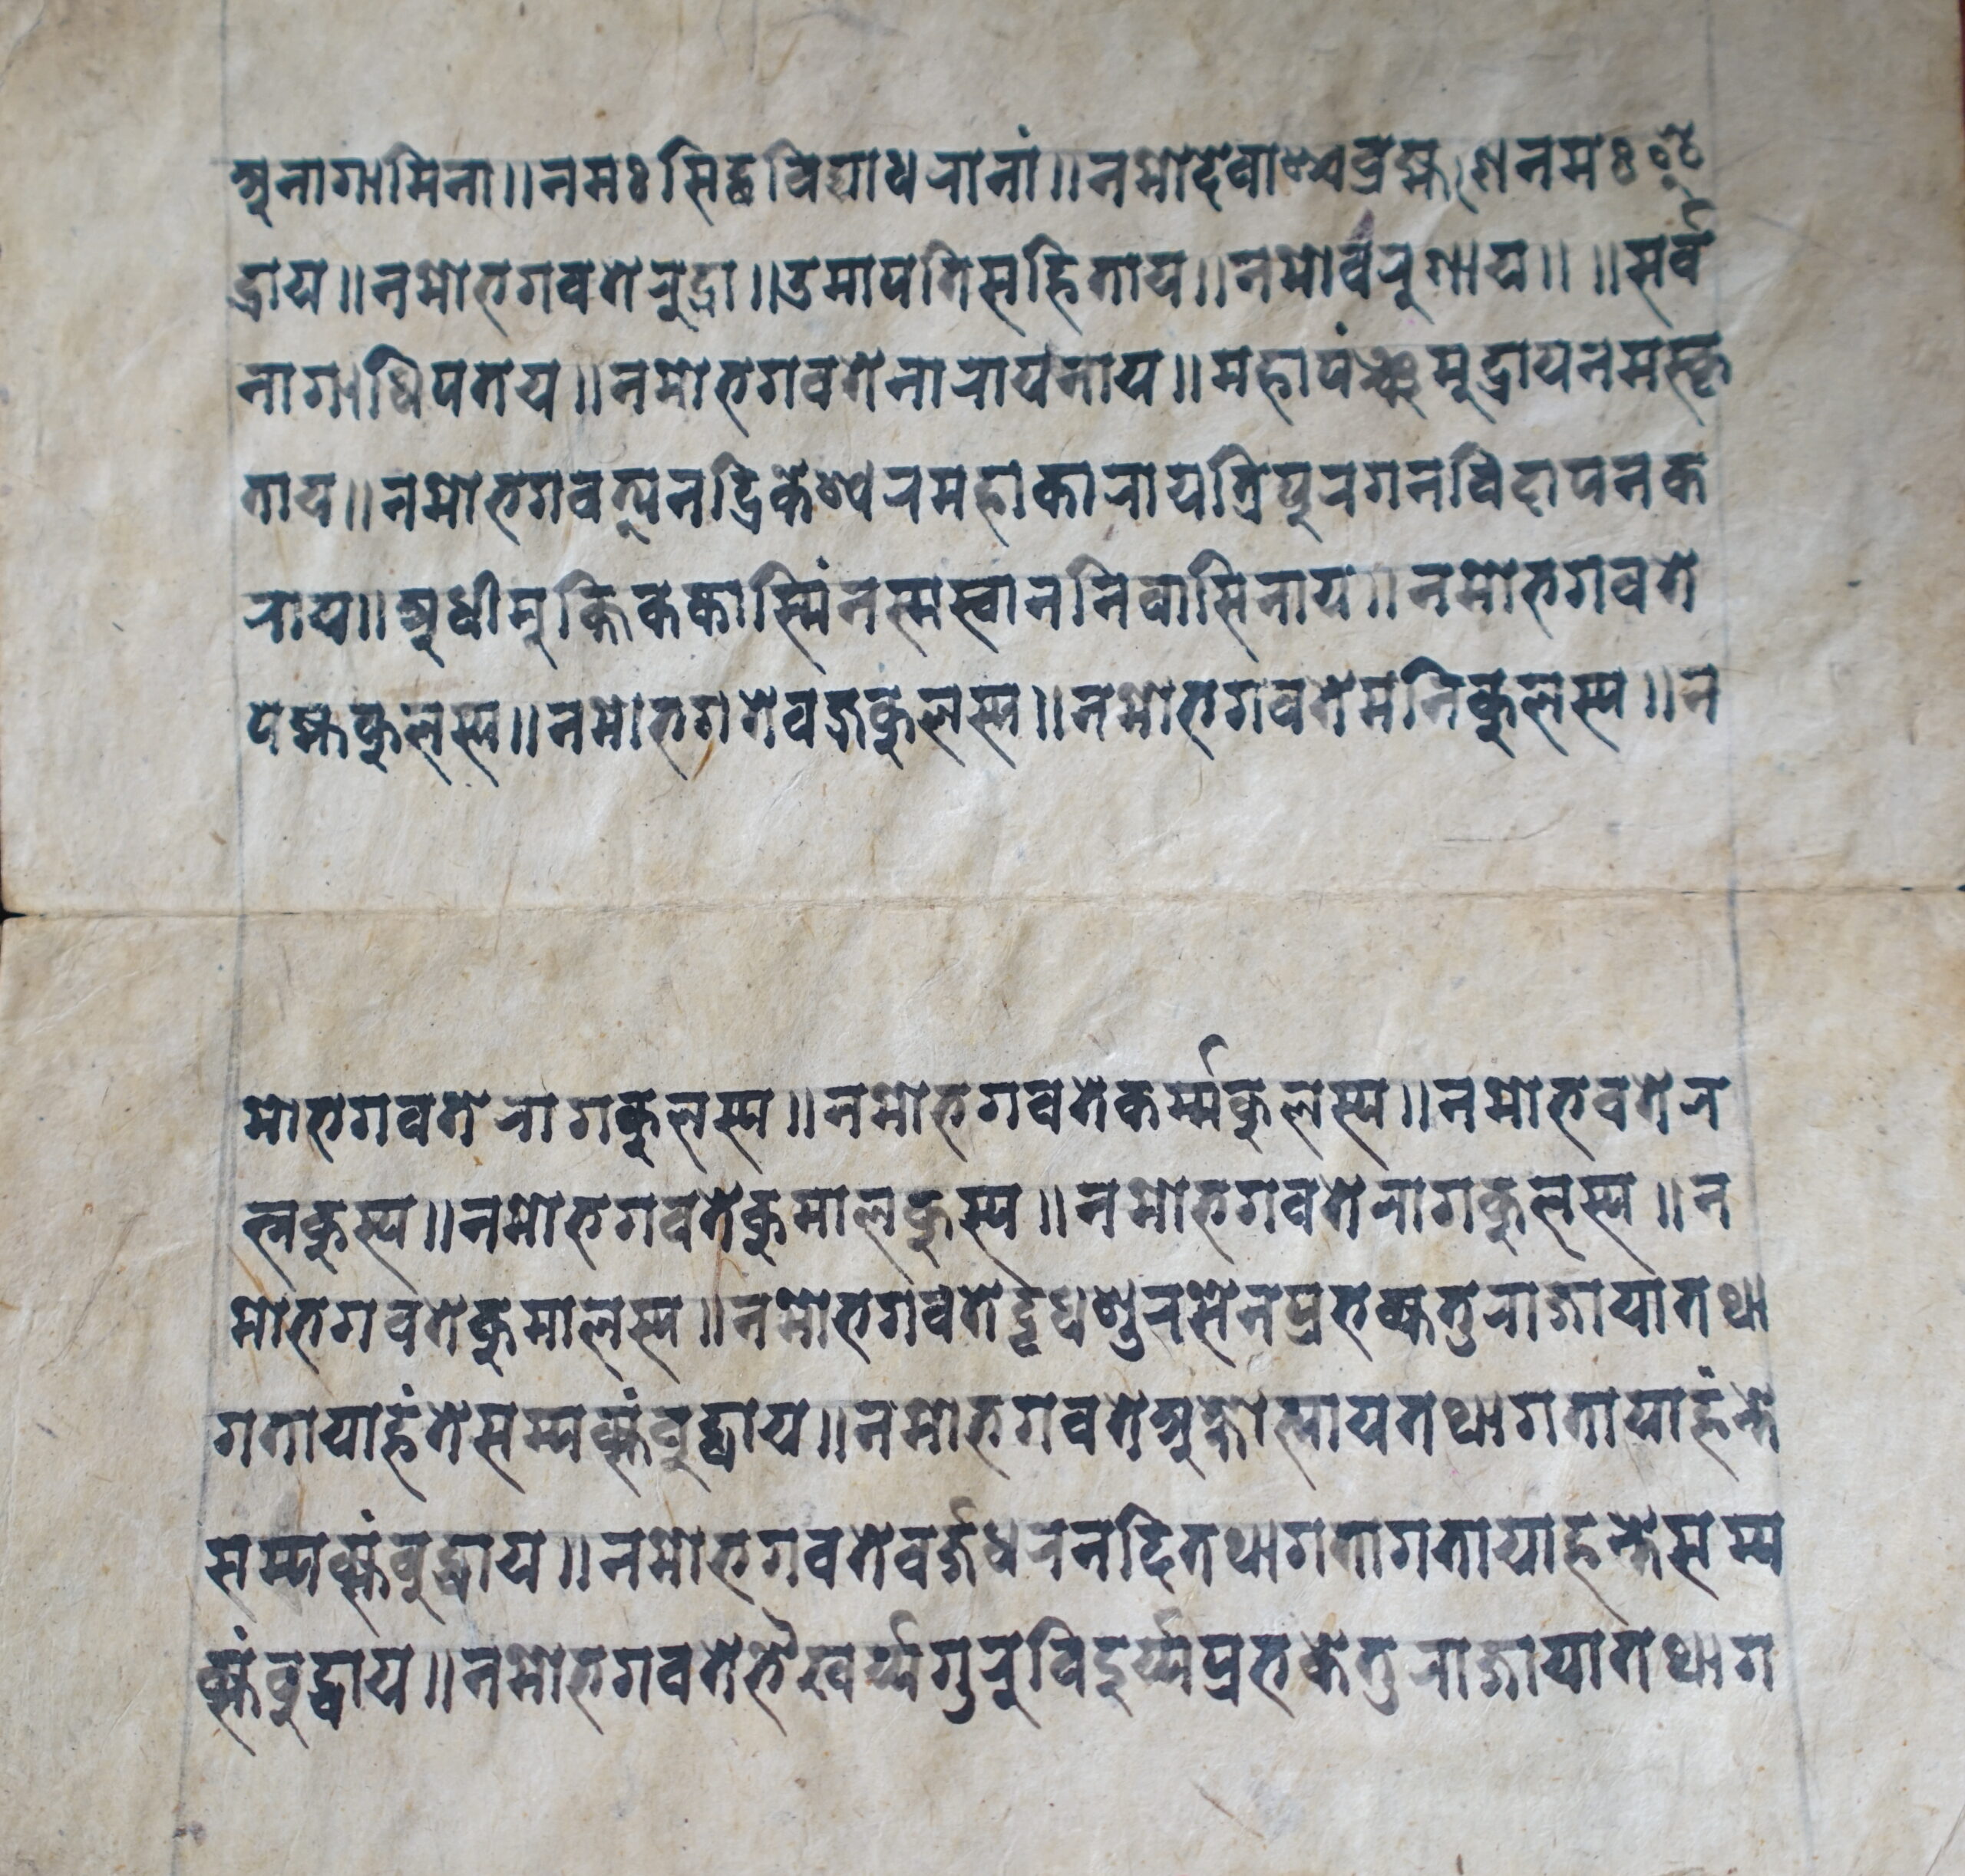 अनागामिना॥नमःसिद्धविद्याधरानां॥नमोदेवाञ्चब्रह्मणनमःइ
द्राय॥नमोभगवतेरुद्रा॥उमापतिसहिताय॥नमोवरुणाय॥॥सर्व
नागाधिपतय॥नमोभगवतेनारायनाय॥महापंञ्चमुद्रायनमस्कृ
ताय॥नमोभगवत्यनद्रिकेश्वरमहाकारायत्रिपुरगनविदापनक
राय॥अधीमुक्तिककास्मिंनस्मस्वाननिवासिनाय॥नमोभगवते
पद्मकुलस्य॥नमोभगतेवज्रकुलस्य॥नमोभगवतेमनिकुलस्य॥न
मोभगवतेरागकुलस्य॥नमोभगवतेकर्म्मकुलस्य॥नमोभवतेर
त्नकुस्य॥नमोभगवतेकुमालकुस्य॥नमोभगवतेनागकुलस्य॥न
मोभगवतेकुमालस्य॥नमोभगवतेदृधशुरसेनप्रभक्यतुराजायातथा
गतायार्हंतेसम्यक्संबुद्धाय॥नमोभगवतेअक्षोभ्यायतथागतायार्हंन्ते
सम्यक्संबुद्धाय॥नमोभगवतेवर्जधरनदितथागतागतायार्हन्तेसम्य
क्संबुद्धाय॥नमोभगवतेभैखर्य्यगुरुविदुर्य्यप्रभकेतुराजायातथाग